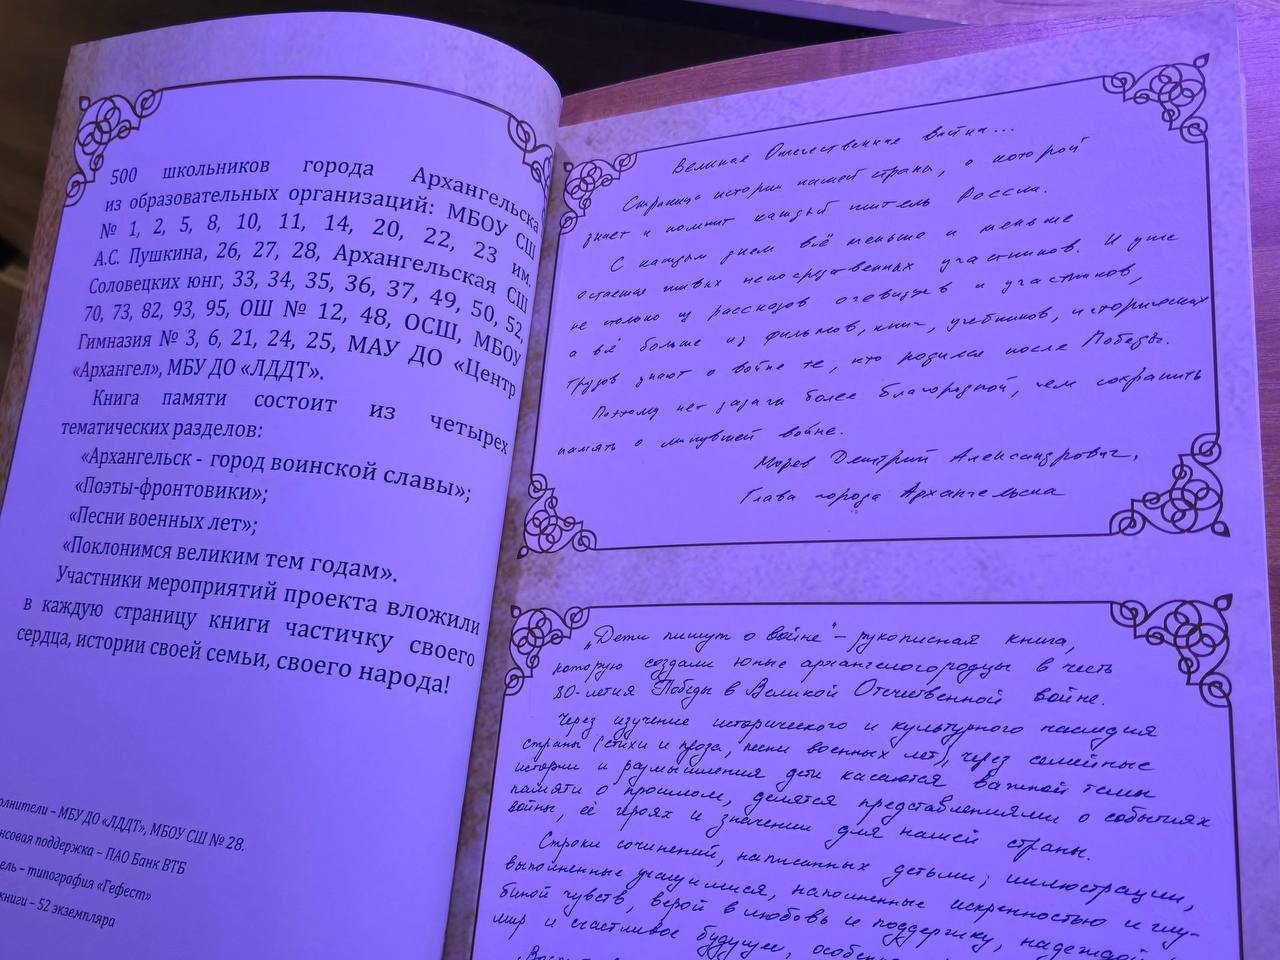 500 школьников города Архангельска
из образовательных организаций: МБОУ СШ
№ 1, 2, 5, 8, 10, 11, 14, 20, 22, 23 им.
А.С. Пушкина, 26, 27, 28, Архангельская СШ
Соловецких юнг, 33, 34, 35, 36, 37, 49, 50, 52,
70, 73, 82, 93, 95, ОШ № 12, 48, ОСШ, МБОУ
Гимназия № 3, 6, 21, 24, 25, МАУ ДО «Центр
«Архангел», МБУ ДО «ЛДДТ».
Книга памяти состоит из четырех
тематических разделов:
«Архангельск - город воинской славы»;
«Поэты-фронтовики»;
«Песни военных лет»;
«Поклонимся великим тем годам».
Участники мероприятий проекта вложили
в каждую страницу книги частичку своего
сердца, истории своей семьи, своего народа!
– МБУ ДО «ЛДДТ», МБОУ СШ № 28.
поддержка – ПАО Банк ВТБ
– типография «Гефест»
книги – 52 экземпляра
Великая Отечественная война...
Страница истории нашей страны, о которой
знает и помнит каждый житель России.
С каждым днем всё меньше и меньше
остаётся живых непосредственных участников. И уже
не только из рассказов очевидцев и участников,
а всё больше из фильмов, книг, учебников, исторических
трудов знают о войне те, кто родился после Победы.
Поэтому нет задачи более благородной, чем сохранить
память о минувшей войне.
Морев Дмитрий Александрович,
Глава города Архангельска
„Дети пишут о войне" – рукописная книга,
которую создали юные архангелогородцы в честь
80-летия Победы в Великой Отечественной войне.
Через изучение исторического и культурного наследия
страны (стихи и проза, песни военных лет), через семейные
истории и размышления дети касаются важной темы
памяти о прошлом, делятся представлениями о событиях
войны, её героях и значении для нашей страны.
Строки сочинений, написанных детьми, иллюстрации,
выполненные учащимися, наполненные искренностью и глу-
биной чувств, верой в любовь и поддержку, надеждой
мир и счастливое будущее,